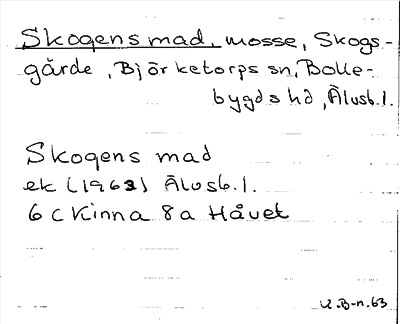 Skogens mad, mosse, Skogs-
gärde, Björketorps sn, Bolle-
bygds hd, Älvsb. l.
Skogens mad
ek (1963) Älvsb. l.
6 C Kinna 8a Håvet
U.B-n. 63